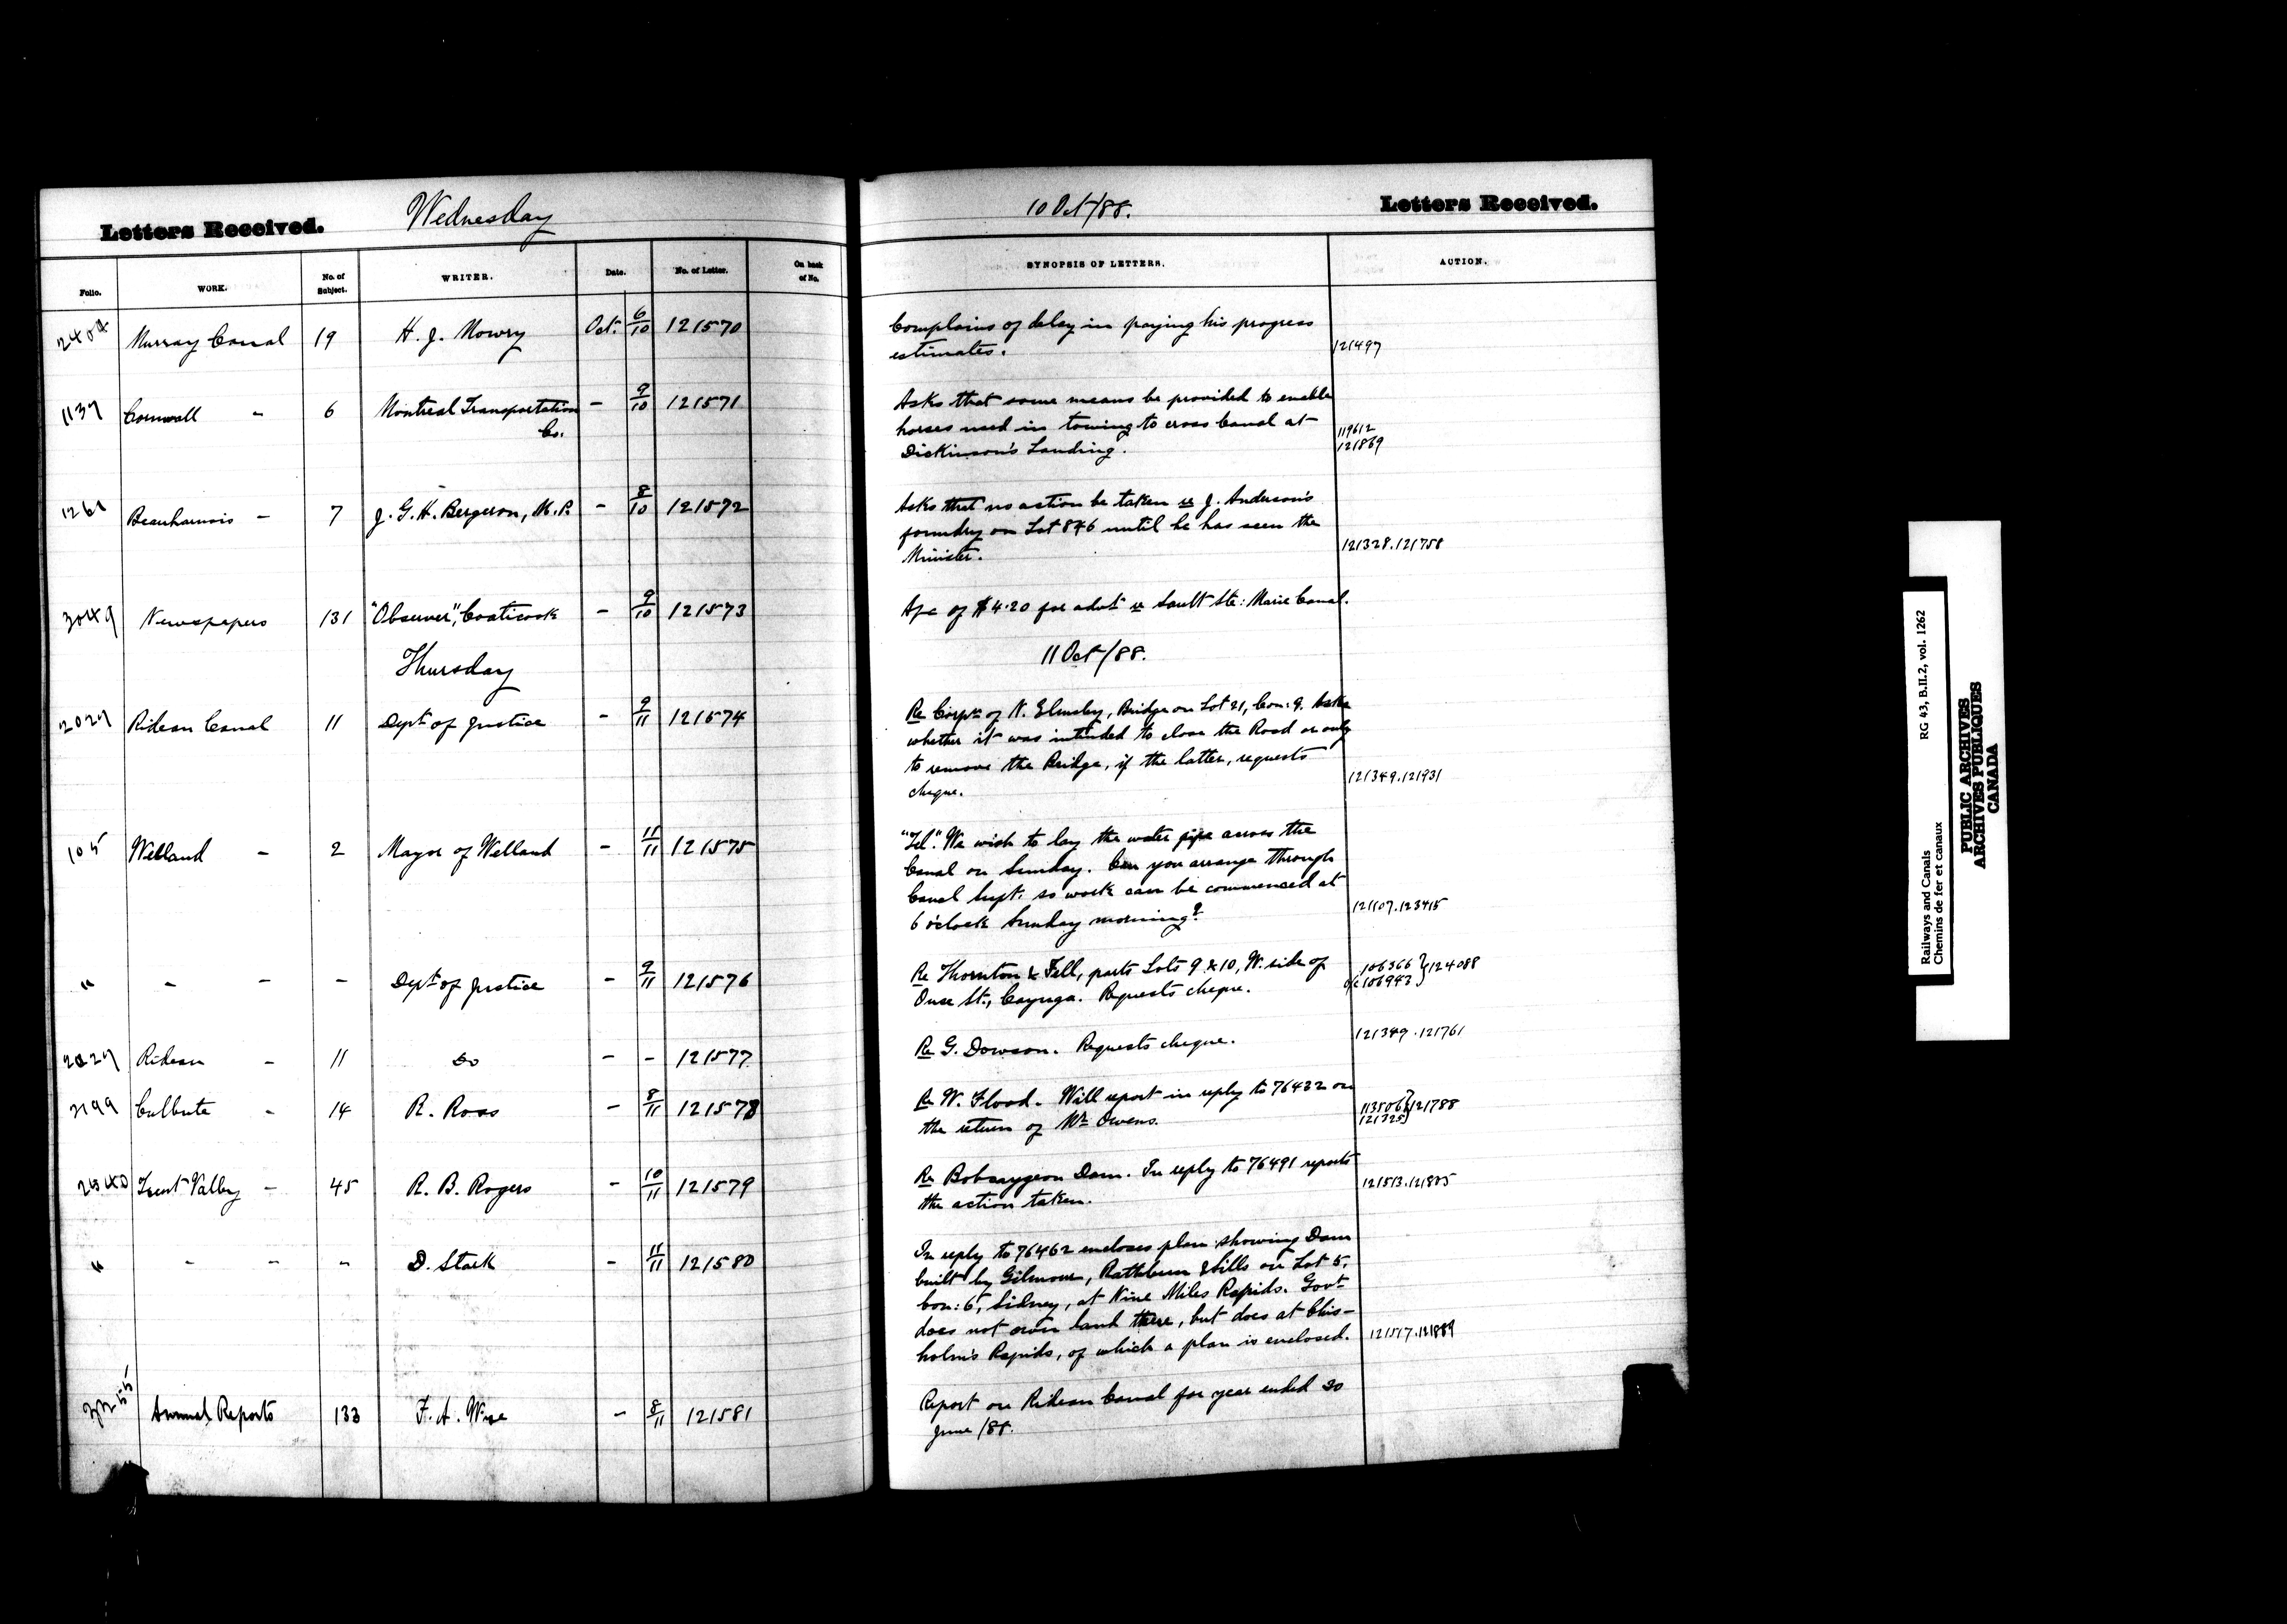 Letters Received. Wednesday 10 Oct/88. Letters Received.
Folio. WORK. No. of Subject. WRITER. Date. No. of Letter. On back of No. SYNOPSIS OF LETTERS. ACTION.
2404 Murray Canal 19 H. J. Mowry Oct. 6/10 121570 Complains of delay in paying his progress
estimates. 121497
1137 Cornwall - 6 Montreal Transportation Co. - 9/10 121571 Asks that some means be provided to enable
horses used in towing to cross Canal at 119612
Dickinson's Landing. 121869
1261 Beauharnois - 7 J. G. H. Bergeron, M.P. - 8/10 121572 Asks that no action be taken re J. Anderson's
foundry on Lot 846 until he has seen the
Minister. 121328.121758
3049 Newspapers 131 "Observer", Coaticook - 9/10 121573 A/c of $4.20 for advt. re Sault Ste: Marie Canal.
Thursday 11 Oct/88.
2027 Rideau Canal 11 Dept. of Justice - 9/11 121574 Re Corpn. of N. Elmsley, Bridge on Lot 21, Con: 9. Asks
whether it was intended to close the Road or only
to remove the Bridge, if the latter, requests
cheque. 121349.121931
105 Welland - 2 Mayor of Welland - 11/11 121575 "Tel". We wish to lay the water pipe across the
Canal on Sunday. Can you arrange through
Canal Supt. so work can be commenced at
6 o'clock Sunday morning? 121107.123415
" - - - Dept. of Justice - 9/11 121576 Re Thornton & Fell, parts Lots 9 & 10, W. side of 106366 } 124088
Ouse St., Cayuga. Requests cheque. 106943
2027 Rideau - 11 Do - - 121577 Re G. Dowson. Requests cheque. 121349.121761
2199 Culbute - 14 R. Ross - 8/11 121578 Re W. Flood. Will report in reply to 76432 on
the return of Mr. Owens. 113506 121325 } 121788
2540 Trent Valley - 45 R. B. Rogers - 10/11 121579 Re Bobcaygeon Dam. In reply to 76491 reports
the action taken. 121513.121805
" - - - D. Stark - 11/11 121580 In reply to 76462 encloses plan showing Dam
built by Gilmour, Rathbun & Sills on Lot 5,
Con: 6, Sidney, at Nine Miles Rapids. Govt.
does not own land there, but does at Chis-
holm's Rapids, of which a plan is enclosed. 121517.121889
Annual Reports 133 F. A. Wise - 8/11 121581 Report on Rideau Canal for year ended 30
June /88.
Railways and Canals RG 43, B.II.2, vol. 1262
Chemins de fer et canaux
PUBLIC ARCHIVES
ARCHIVES PUBLIQUES
CANADA